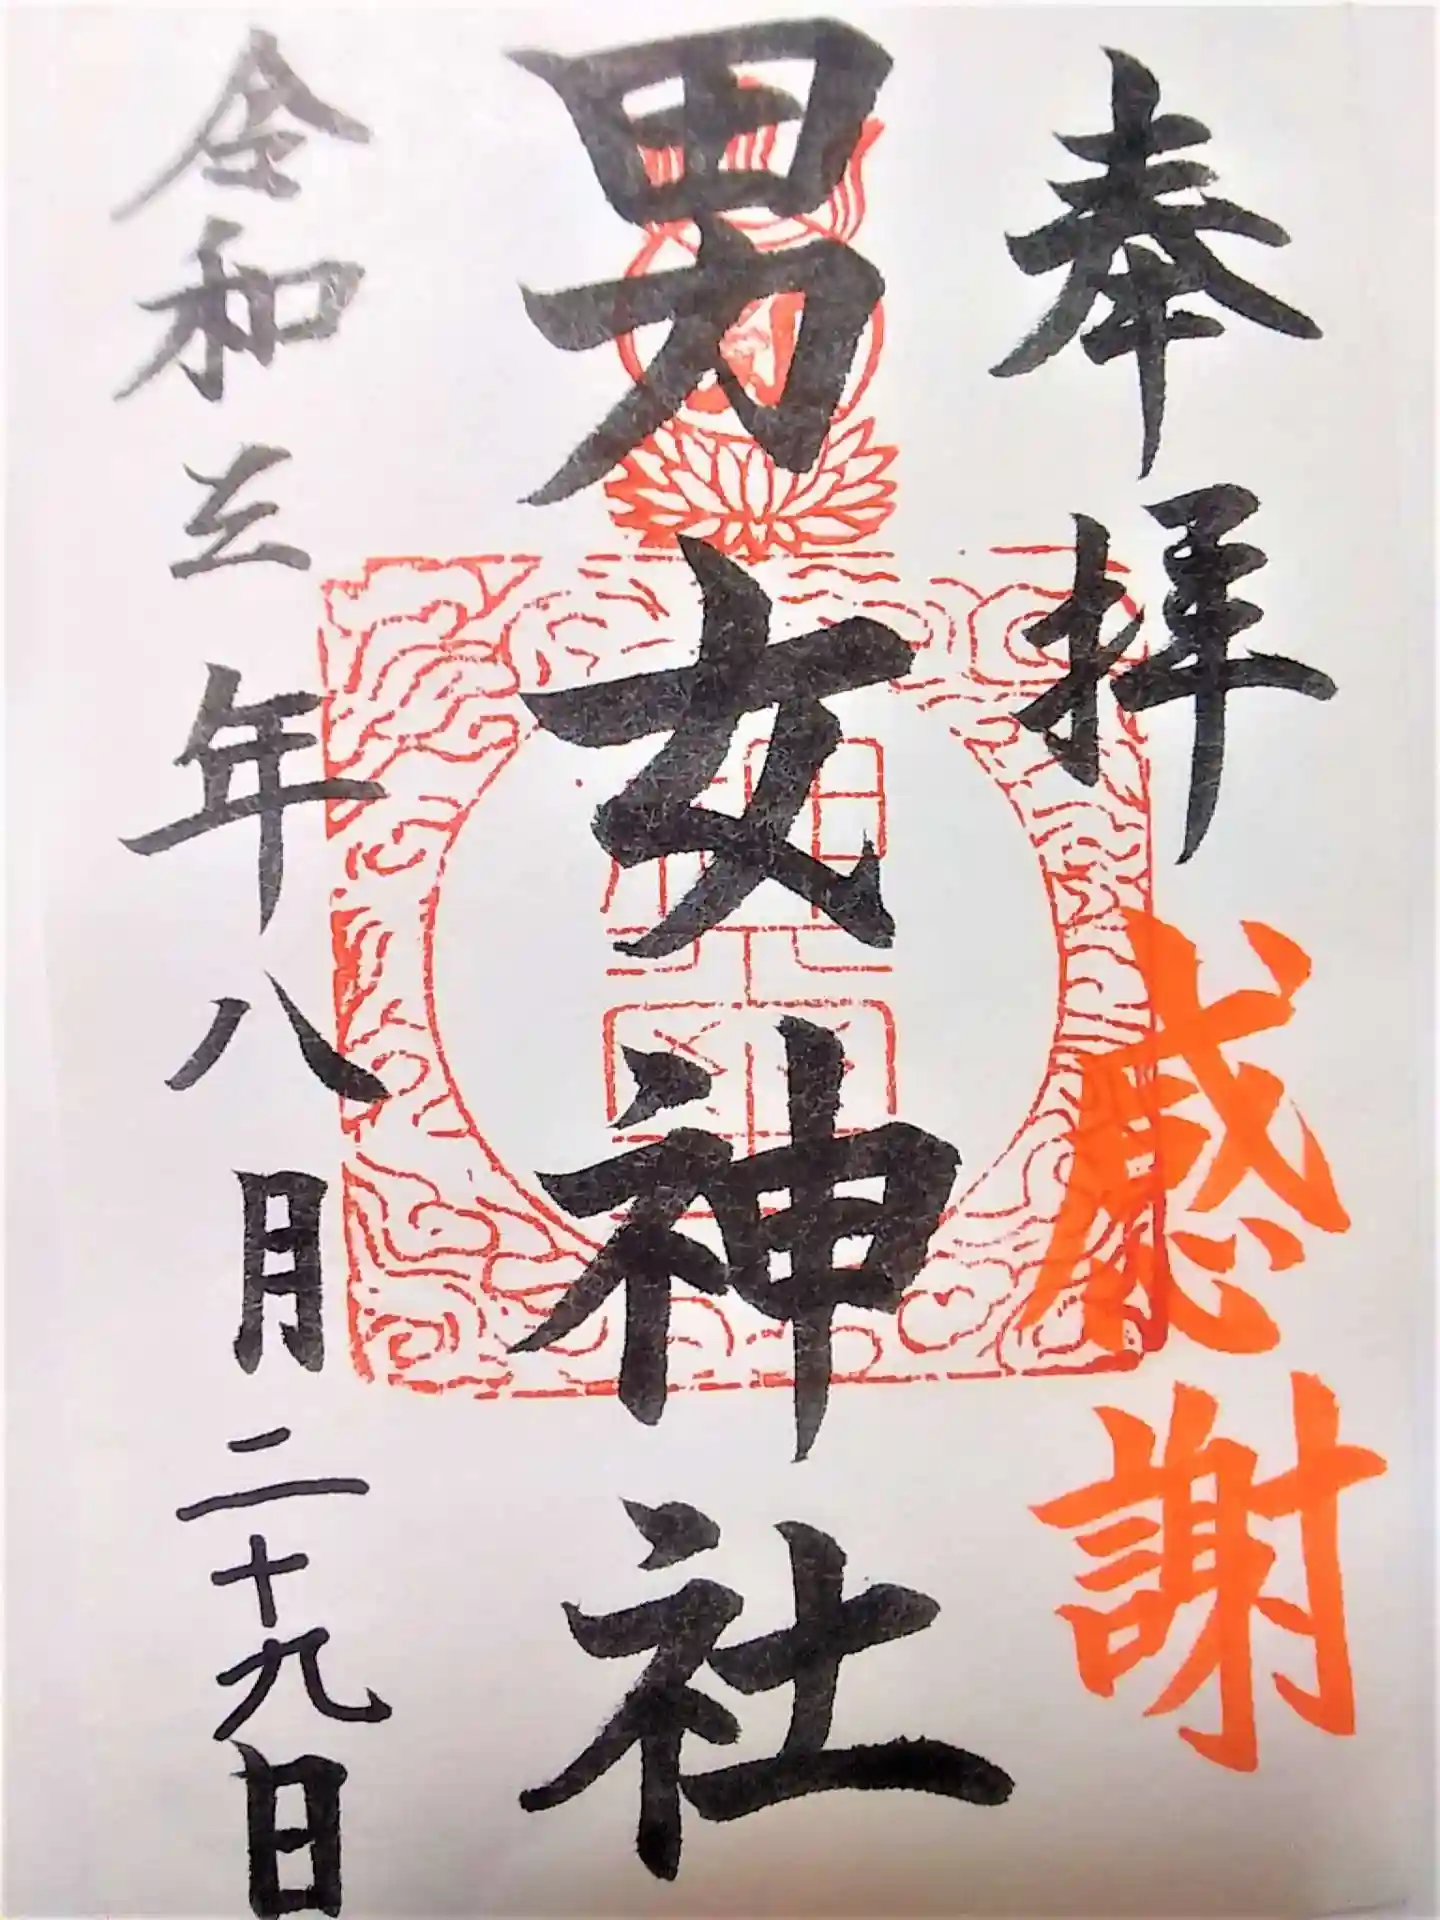 奉拝
感謝
男女神社
令和五年八月二十九日